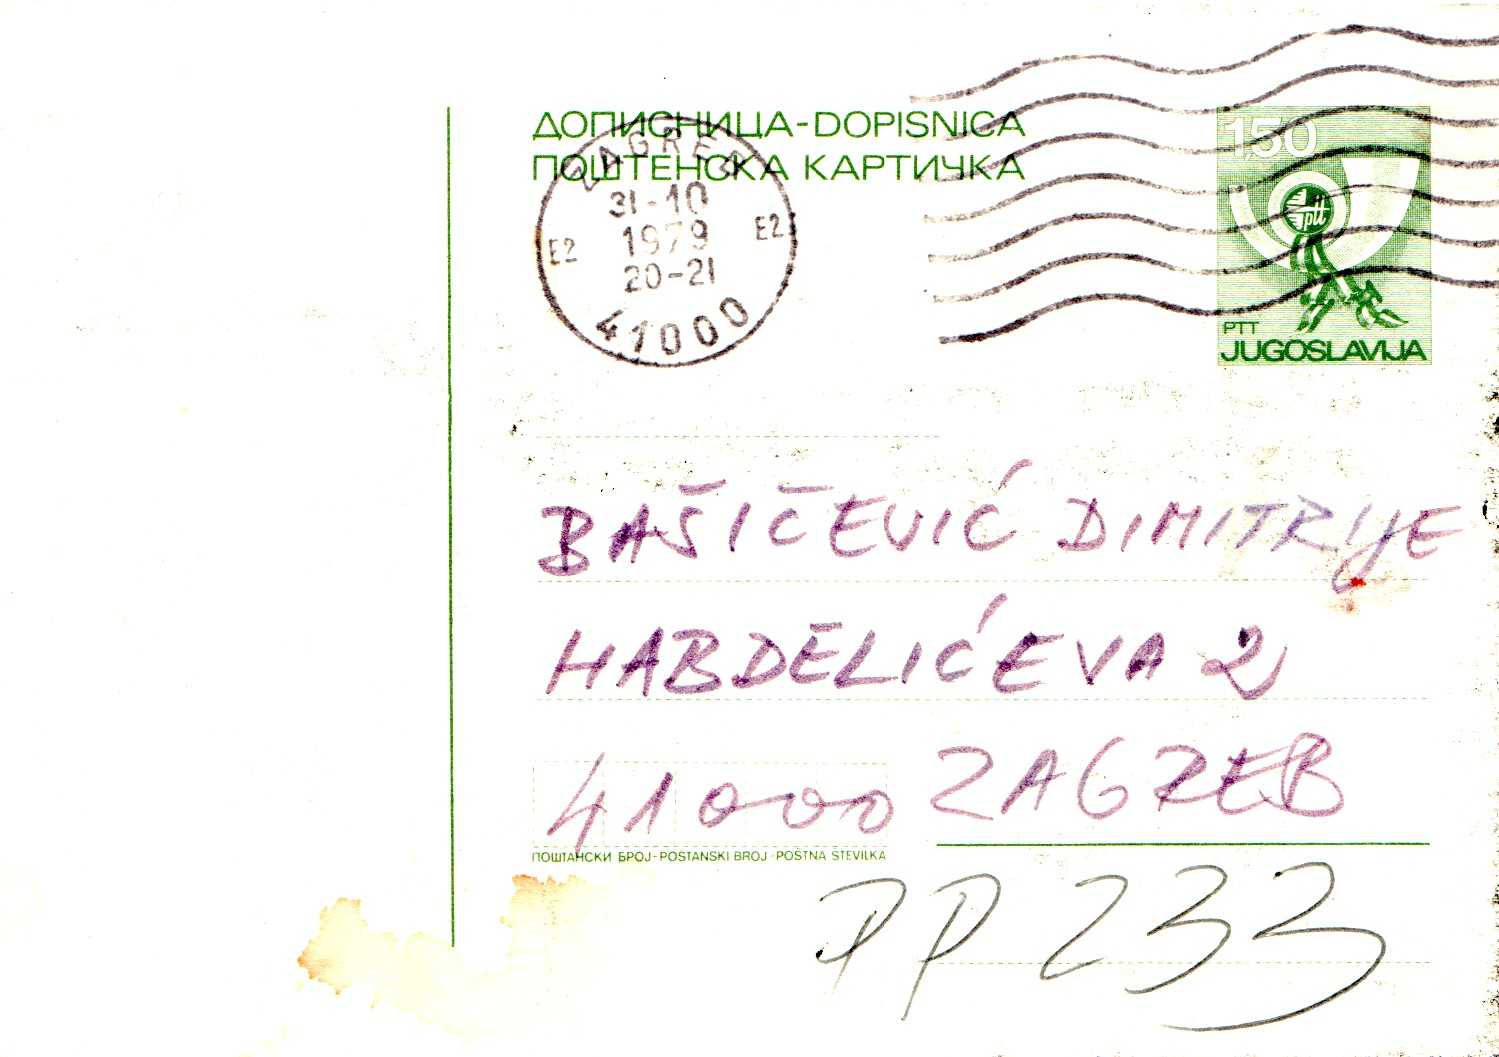 ДОПИСНИЦА-DOPISNICA
ПОШТЕНСКА КАРТИЧКА
150
ptt
PTT
JUGOSLAVIJA
ZAGREB
31-10
1979
20-21
E2
E2
41000
BAŠIČEVIĆ DIMITRIJE
HABDELIĆEVA 2
41000 ZAGREB
ПОШТАНСКИ БРОЈ-POSTANSKI BROJ-POSTNA STEVILKA
PP 233